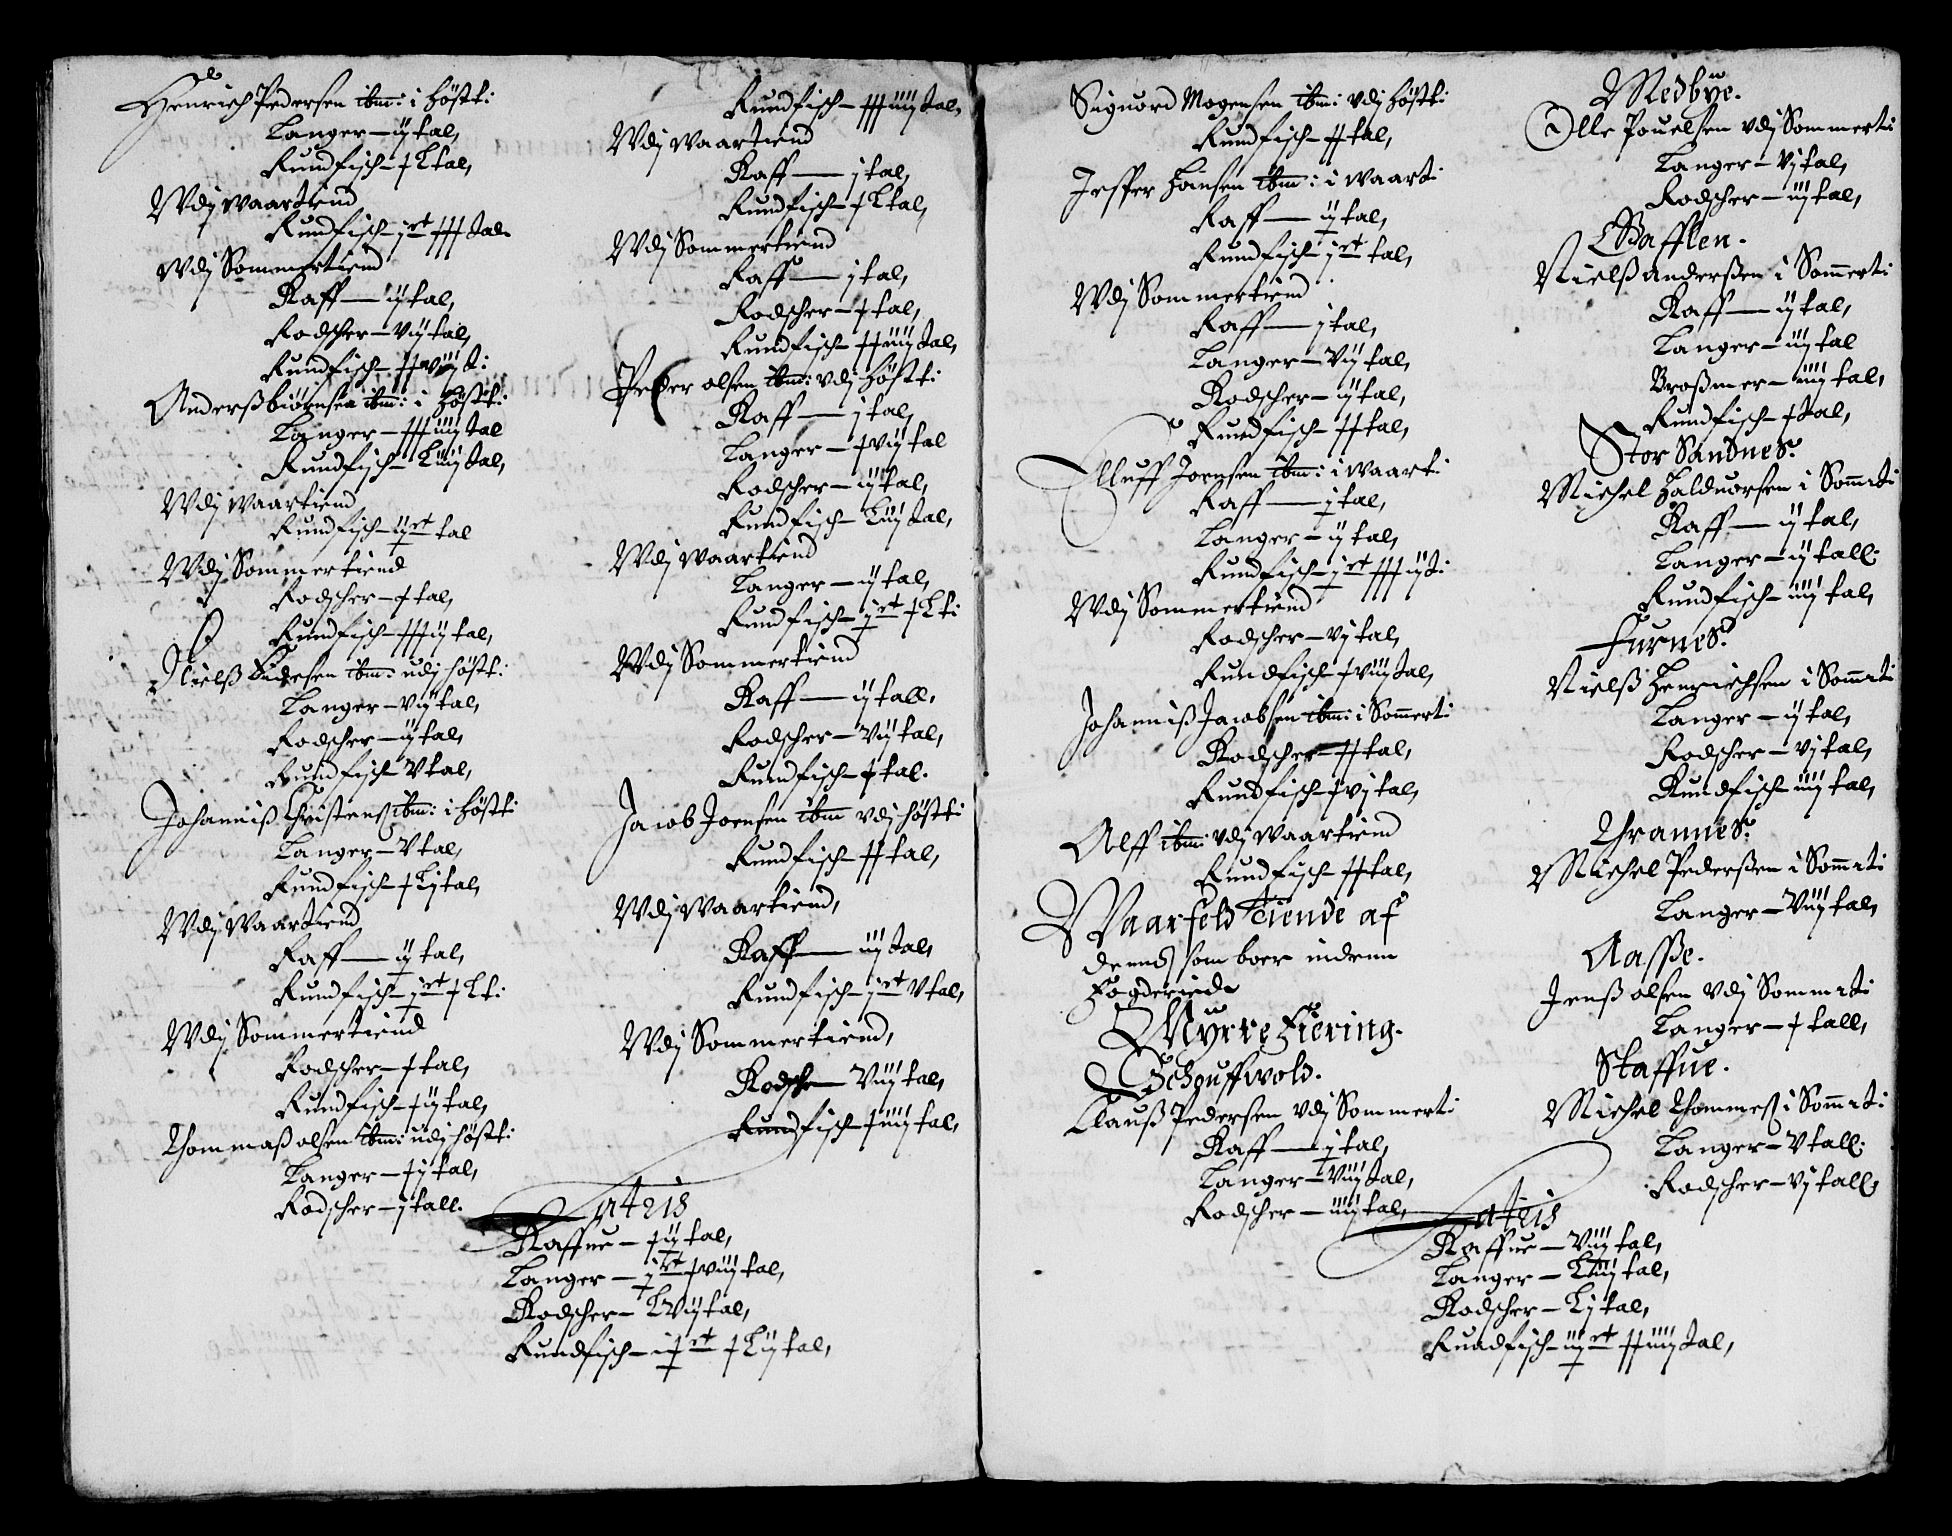 Henrich Pedersen ibm: i Höstt:
Langer – ij tal,
Rundfisch – ꝉ L tal,
Vdj Waartiend
Rundfisch – j rt ꝉꝉꝉ tal.
Vdj Sommertiend
Raff — ij tal,
Rodscher – vij tal,
Rundfisch – ꝉꝉ viij t:
Anderß biörnsen ibm: i Höstt:
Langer – ꝉꝉꝉ iiij tal
Rundfisch – L iiij tal,
Vdj Waartiend
Rundfisch – ij rt tal
Vdj Sommertiend
Rodscher – ꝉ tal,
Rundfisch – ꝉꝉꝉ ij tal,
Nielß ibm: udj Höstt:
Langer – vij tal,
Rodscher – ij tal,
Rundfisch – V tal,
Johanniß Christenß ibm: i Höstt:
Langer – V tal,
Rundfisch – ꝉ L j tal,
Vdj Waartiend
Raff — ij tal,
Rundfisch – j rt ꝉ L t:
Vdj Sommertiend
Rodscher – ꝉ tal,
Rundfisch – ꝉ ij tal,
Thommaß olsen ibm: udj Höstt:
Langer – ꝉ j tal,
Rodscher – j tall.
Rundfisch – ꝉꝉꝉ iiij tal.
Vdj Waartiend
Raff — j tal,
Rundfisch – ꝉ L tal,
Vdj Sommertiend
Raff — j tal,
Rodscher – ꝉ tal,
Rundfisch – ꝉꝉ iiij tal,
Peder olsen ibm: vdj Höstt:
Raff — j tal,
Langer – ꝉ vij tal
Rodscher – iij tal,
Rundfisch – L iij tal,
Vdj Waartiend
Langer – ij tal,
Rundfisch – j rt ꝉ L t:
Vdj Sommertiend
Raff — ij tall,
Rodscher – Vij tal,
Rundfisch – ꝉ tal.
Jacob Joensen ibm vdj Höstt:
Rundfisch – ꝉꝉ tal,
Vdj Waartiend,
Raff — iij tal,
Rundfisch – j rt V tal,
Vdj Sommertiend,
Rodsche – Viij tal,
Rundfisch – ꝉ iiij tal,
Lateris
Raffue – ꝉ ij tal,
Langer – j rt ꝉ viij tal,
Rodscher – L Vij tal,
Rundfisch – rt ꝉ L ij tal,
Siguord Mogensen ibm: vdj Höstt:
Rundfisch – ꝉꝉ tal,
Jesper Hansen ibm: i Waart:
Raff — ij tal,
Rundfisch – j rt tal,
Vdj Sommertiend
Raff — j tal,
Langer – Vij tal,
Rodscher – ij tal,
Rundfisch – ꝉꝉ tal,
Elluff Joensen ibm: i Waart:
Raff — j tal,
Langer – ij tal,
Rundfisch – j rt ꝉꝉꝉ ij t:
Vdj Sommertiend
Rodscher – vj tal,
Rundfisch – ꝉ viij tal,
Johanniß Jacobsen ibm: i Sommert:
Rodscher – ꝉꝉ tal,
Rundfisch – ꝉ vj tal,
Alff ibm: vdj Waartiend
Rundfisch – ꝉꝉ tal,
Waarfeld Tiende af
dennd som boer indenn
Fogderied
Myrre Fiering.
Schouffwold.
Clauß Pedersen vdj Sommert:
Raff — j tal,
Langer – Viij tal,
Rodscher – iiij tal,
Medbÿe.
Olle Pouelsen vdj Sommert:
Langer – vj tal,
Rodscher – iij tal,
Gafflen.
Nielß Anderßen i Sommert:
Raff — ij tal,
Langer – iij tal
Broßmer – iiij tal,
Rundfisch – ꝉ tal,
Stor Sandnes.
Michel Halduorsen i Sommt:
Raff — ij tal,
Langer – ij tall.
Rundfisch – iiij tal,
Furnes.
Nielß Henrichsen i Sommt:
Langer – ij tal,
Rodscher – vj tal,
Rundfisch – iiij tal,
Thrannes.
Michel Pederßen i Sommt:
Langer – Viij tal,
Aasße.
Jenß olsen vdj Sommt:
Langer – ꝉ tall,
Staffue.
Michel Thommeß i Sommt:
Langer – V tall.
Rodscher – vj tall,
Lateris
Raffue – Viij tal,
Langer – L iiij tal,
Rodscher – L j tal,
Rundfisch – iij rt ꝉꝉ iiij tal,